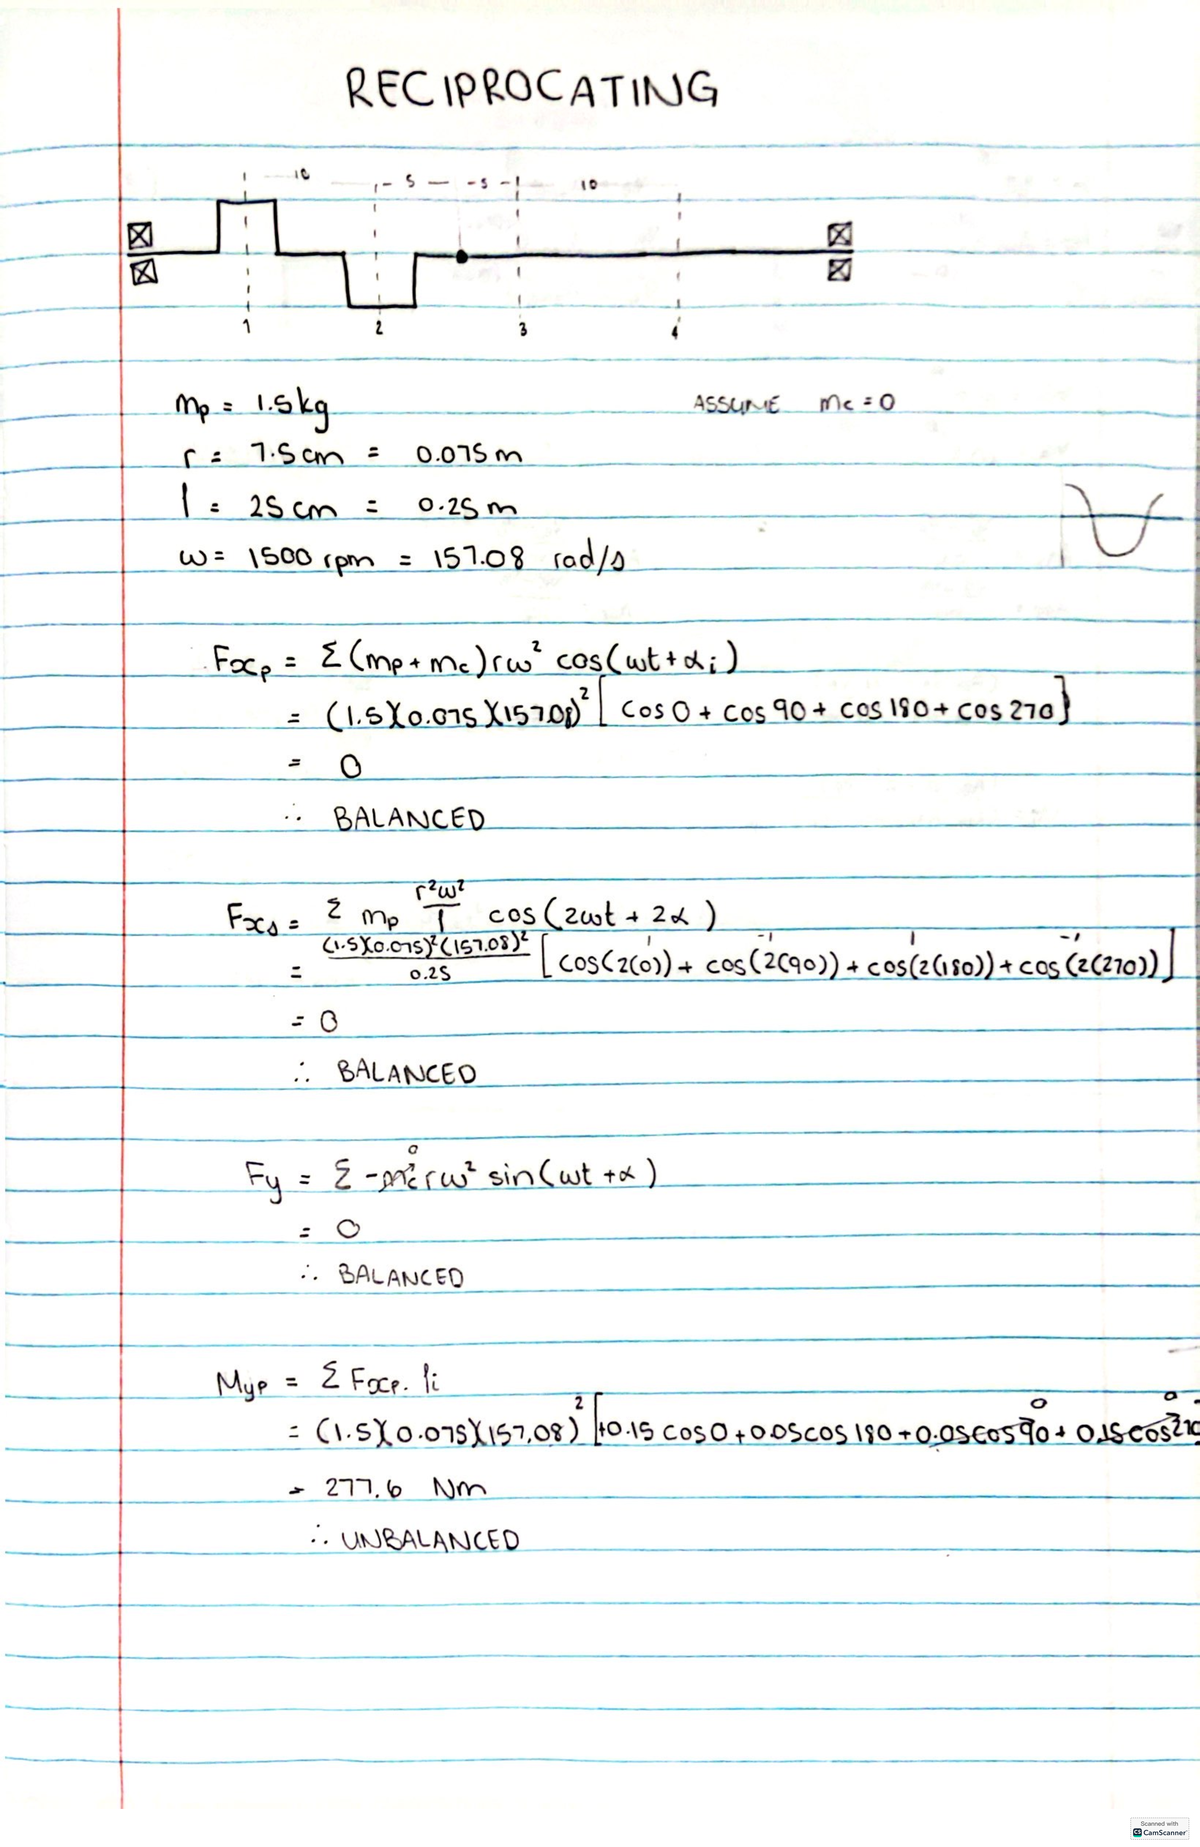 RECIPROCATING
10 5 5 10
1 2 3 4
mp = 1.5kg ASSUME mc = 0
r = 7.5cm = 0.075m
l = 25cm = 0.25m
ω = 1500 rpm = 157.08 rad/s
Fxp = Σ(mp + mc)rω² cos(ωt + αi)
= (1.5)(0.075)(157.08)² [cos 0 + cos 90 + cos 180 + cos 270]
= 0
∴ BALANCED
Fxs = Σ mp r²ω²/l cos(2ωt + 2α)
= (1.5)(0.075)²(157.08)²/0.25 [cos(2(0)) + cos(2(90)) + cos(2(180)) + cos(2(270))]
1 -1 1 -1
= 0
∴ BALANCED
Fy = Σ -mc rω² sin(ωt + α)
0
= 0
∴ BALANCED
Myp = Σ Fxp. li
= (1.5)(0.075)(157.08)² [+0.15 cos 0 + 0.05 cos 180 + 0.05 cos 90 + 0.15 cos 270
0 0
= 277.6 Nm
∴ UNBALANCED
Scanned with
CS CamScanner